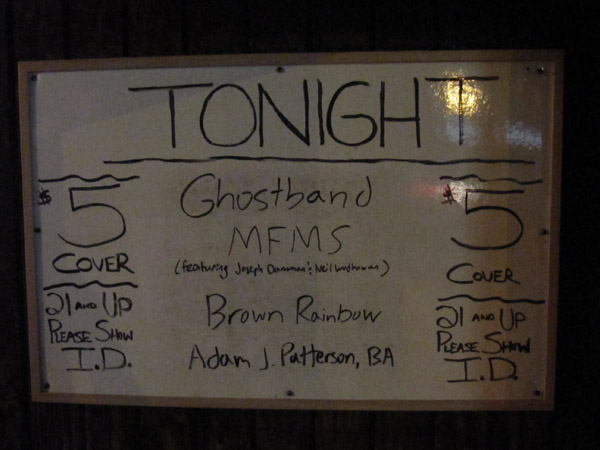 TONIGHT
$5
COVER
21 AND UP
PLEASE SHOW
I.D.
Ghostband
MFMS
(featuring Joseph Damman & Neil
Brown Rainbow
Adam J. Patterson, BA
$5
COVER
21 AND UP
PLEASE SHOW
I.D.